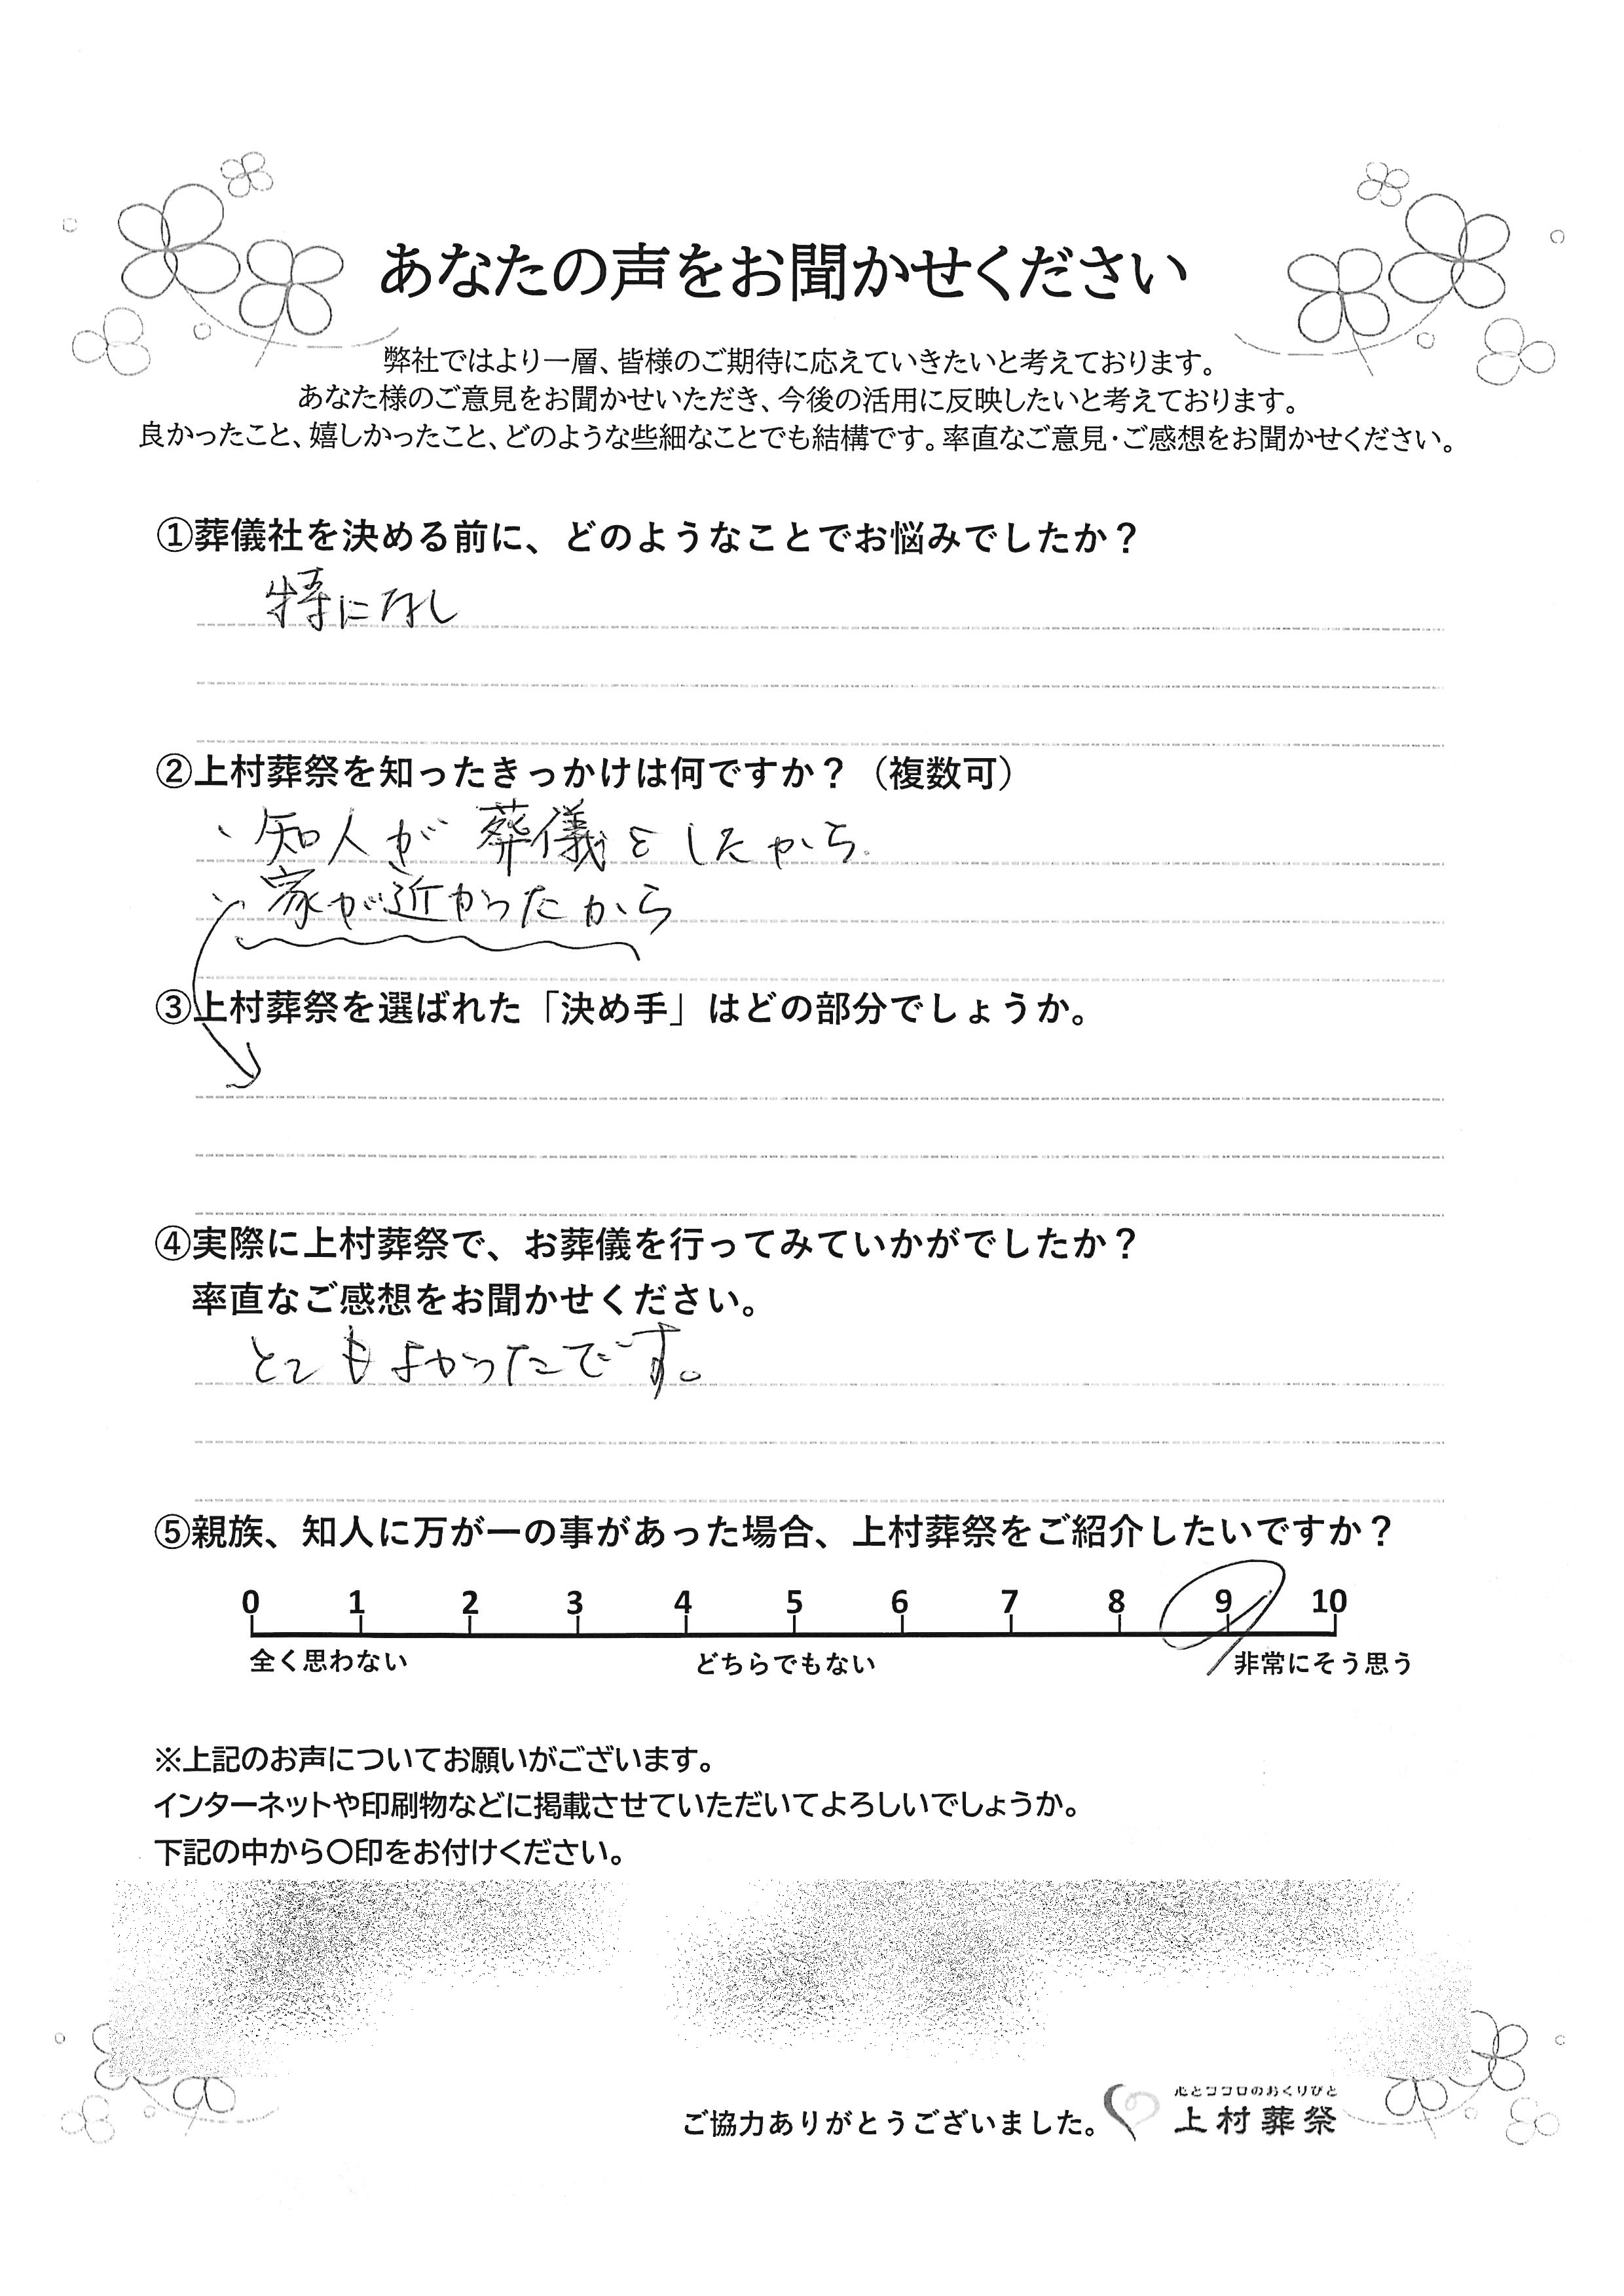 あなたの声をお聞かせください
弊社ではより一層、皆様のご期待に応えていきたいと考えております。
あなた様のご意見をお聞かせいただき、今後の活用に反映したいと考えております。
良かったこと、嬉しかったこと、どのような些細なことでも結構です。率直なご意見・ご感想をお聞かせください。
①葬儀社を決める前に、どのようなことでお悩みでしたか？
特になし
②上村葬祭を知ったきっかけは何ですか？（複数可）
、知人が葬儀をしたから
、家が近かったから
③上村葬祭を選ばれた「決め手」はどの部分でしょうか。
④実際に上村葬祭で、お葬儀を行ってみていかがでしたか？
率直なご感想をお聞かせください。
とてもよかったです。
⑤親族、知人に万が一の事があった場合、上村葬祭をご紹介したいですか？
0 1 2 3 4 5 6 7 8 9 10
全く思わない どちらでもない 非常にそう思う
※上記のお声についてお願いがございます。
インターネットや印刷物などに掲載させていただいてよろしいでしょうか。
下記の中から〇印をお付けください。
心とココロのおくりびと
ご協力ありがとうございました。 上村葬祭